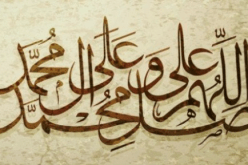 اللهم صل علی محمد وعلی آل محمد